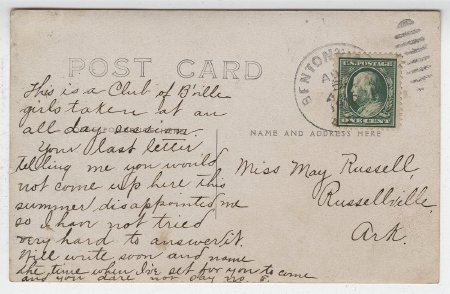 POST CARD
BENTON
U.S. POSTAGE
ONE CENT
This is a Club of B'ville
girls taken at an
all day session.
Your last letter
telling me you would
not come up here this
summer disappointed me
so I hav not tried
very hard to answer it.
Will write soon and name
the time when I've set for you to come
and you dare not say no.
NAME AND ADDRESS HERE
Miss May Russell,
Russellville,
Ark.